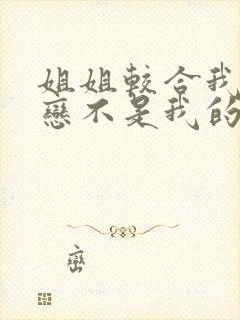 姐姐較合我
戀不是我的
巒